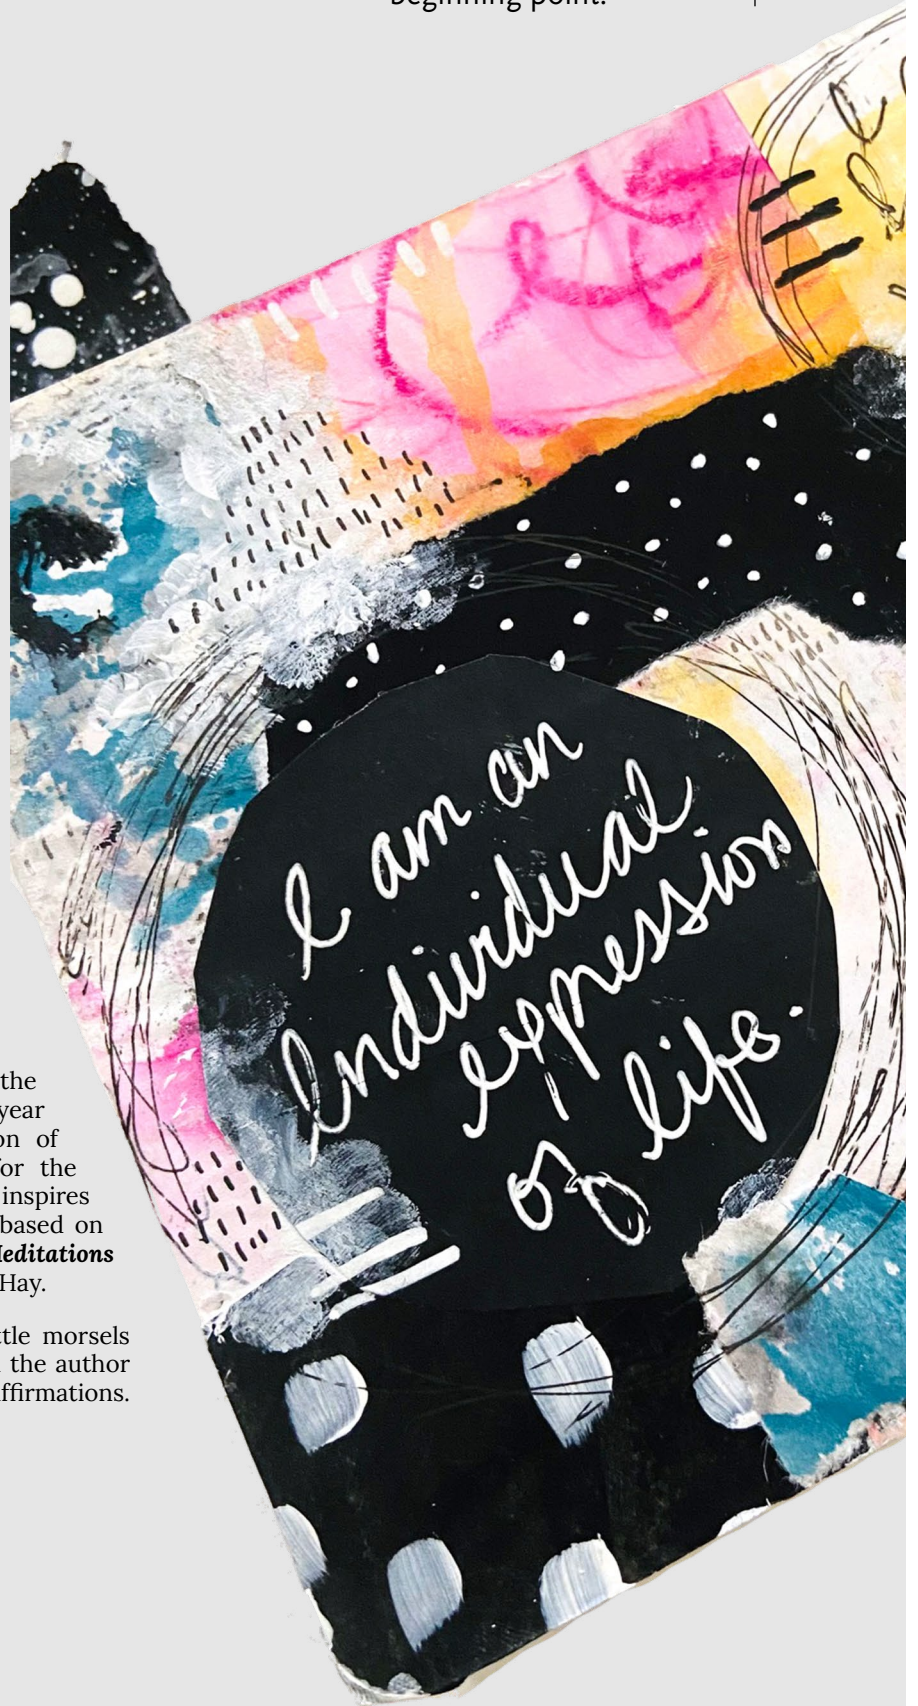 beginning point.
I am an
Individual
expression
of life.
the
year
on of
for the
inspires
based on
Meditations
Hay.
ttle morsels
the author
ffirmations.